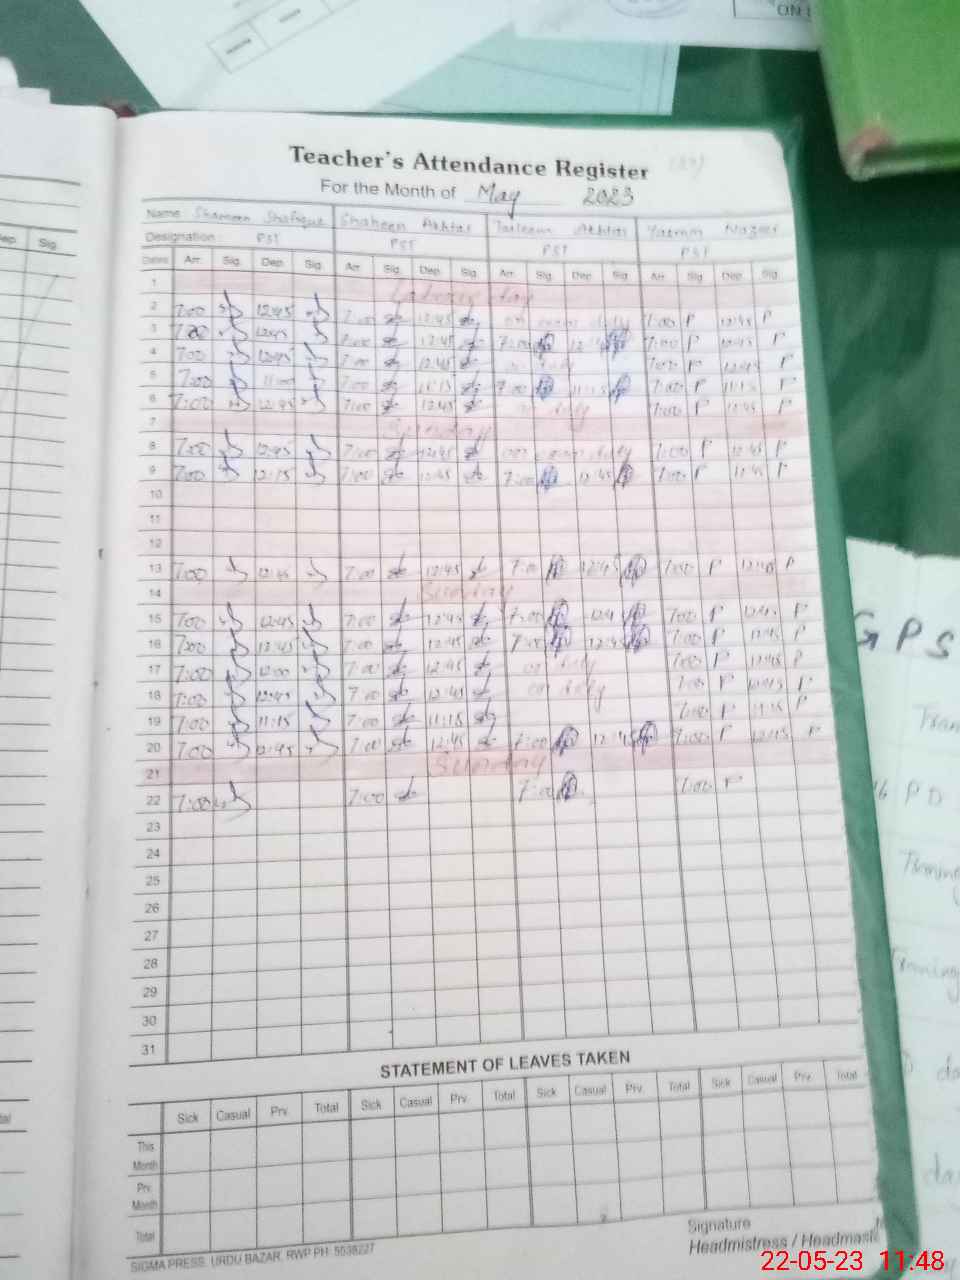 ON
Teacher's Attendance Register
For the Month of May 2023
Name Shameen Shafique Shaheen Akhtar Akhtar Nazeer
Designation : PST PST PST PST
Dates Arr. Sig. Dep. Sig. Arr. Sig. Dep. Sig. Arr. Sig. Dep. Sig. Arr. Sig. Dep. Sig.
ep. Sig.
1 day
2 7:00 12:45 7:00 12:45 on duty 7:00 P 12:45 P
3 7:00 12:45 7:00 12:45 7:00 7:00 P 12:45 P
4 7:00 12:45 7:00 12:45 on duty 7:00 P 12:45 P
5 7:00 11:00 7:00 11:15 7:00 11:15 7:00 P 11:15 P
6 7:00 12:45 7:00 12:45 on duty 7:00 P 12:45 P
7 Sunday
8 7:00 12:45 7:00 12:45 on duty 7:00 P 12:45 P
9 7:00 12:15 7:00 12:45 7:00 12:45 7:00 P 12:45 P
10
11
12
13 7:00 12:45 7:00 12:45 7:00 12:45 7:00 P 12:45 P
14 Sunday
15 7:00 12:45 7:00 12:45 7:00 7:00 P 12:45 P
16 7:00 12:45 7:00 12:45 7:00 12:45 7:00 P 12:45 P
17 7:00 12:00 7:00 12:45 on duty 7:00 P 12:45 P
18 7:00 12:45 7:00 12:45 on duty 7:00 P 12:45 P
19 7:00 11:15 7:00 11:15 7:00 P 11:15 P
20 7:00 12:45 7:00 12:45 7:00 12:45 7:00 P 12:45 P
21 Sunday
22 7:00 7:00 7:00 7:00 P
23
24
25
26
27
28
29
30
31
STATEMENT OF LEAVES TAKEN
Sick Casual Prv. Total Sick Casual Prv. Total Sick Casual Prv. Total Sick Casual Prv. Total
This
Month
Prv.
Month
Total
Signature
Headmistress / Headmas
SIGMA PRESS, URDU BAZAR, RWP PH: 5538227
GPS
PD
22-05-23 11:48